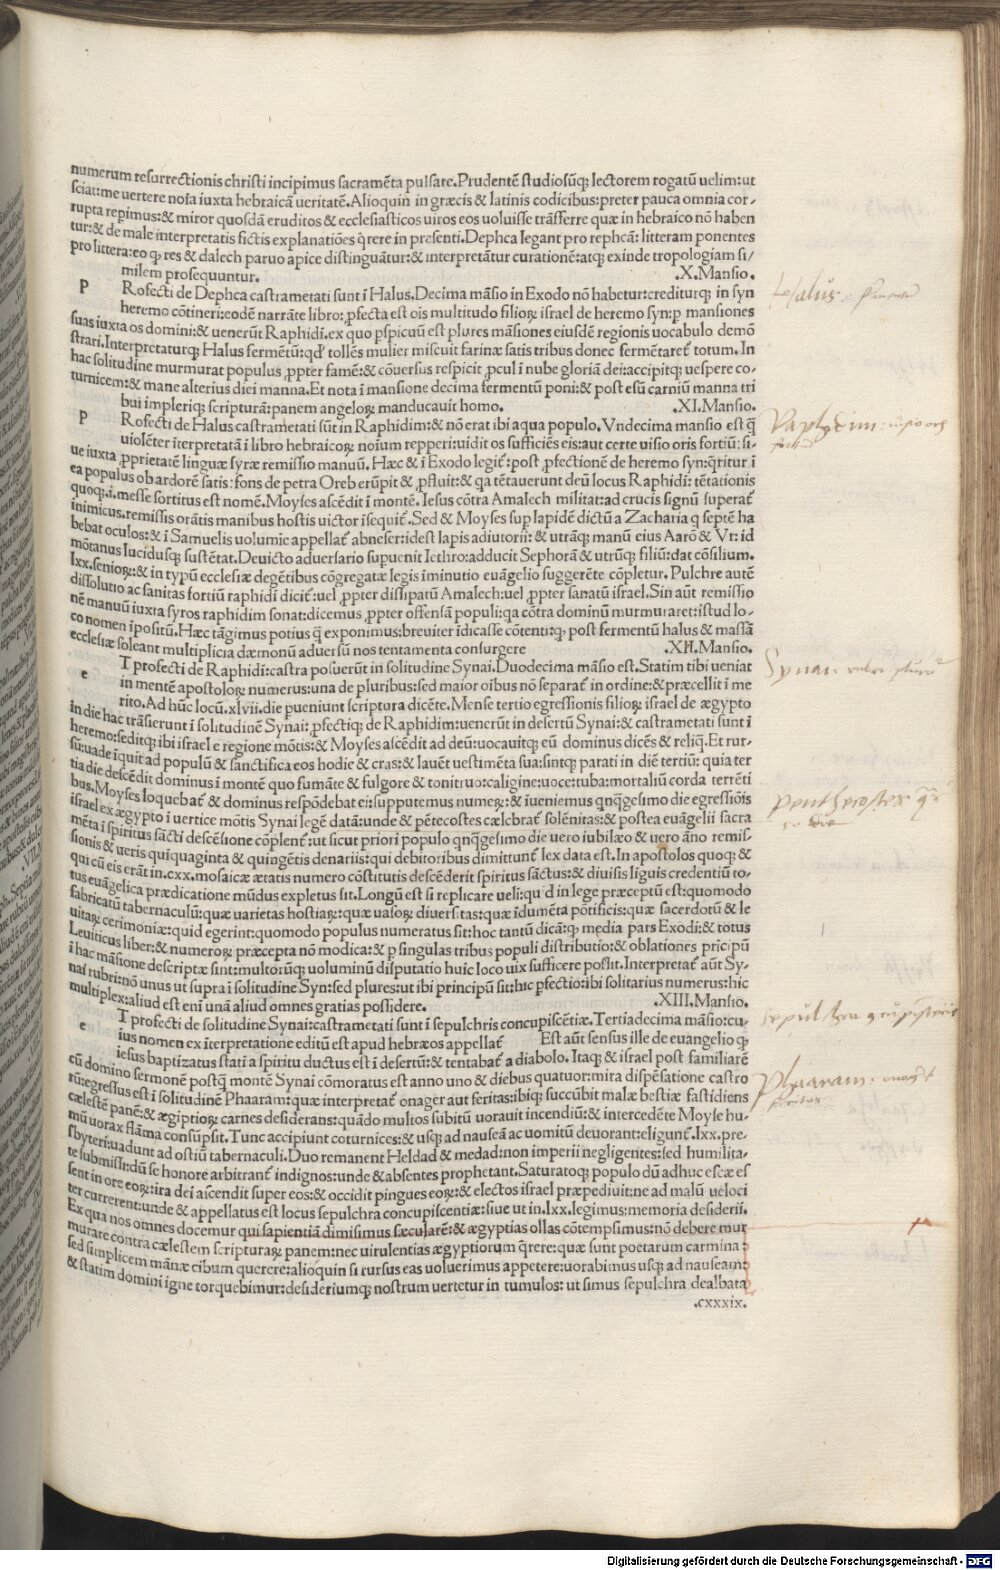 numerum resurrectionis christi incipimus sacramēta pulsare.Prudentē studiosūq; lectorem rogatū uelim:ut
sciat:me uertere noīa iuxta hebraicā ueritatē.Alioquin in græcis & latinis codicibus:preter pauca omnia cor-
rupta repimus:& miror quosdā eruditos & ecclesiasticos uiros eos uoluisse trāsferre quæ in hebraico nō haben
tur:& de male interpretatis fictis explanatiōes q̄rere in presenti.Dephca legant pro rephcā: litteram ponentes
pro littera:eo q; res & dalech paruo apice distinguātur:& interpretātur curationē:atq; exinde tropologiam si/
milem prosequuntur. .X.Mansio.
P Rofecti de Dephca castrametati sunt ī Halus.Decima māsio in Exodo nō habetur:crediturq; in syn
heremo cōtineri:eodē narrāte libro: ꝓfecta est ois multitudo filioꝝ israel de heremo syn:p mansiones
suas iuxta os domini:& uenerūt Raphidi.ex quo pspicuū est plures māsiones eiusdē regionis uocabulo demō
strari.Interpretaturq; Halus fermētū:qd' tollēs mulier miscuit farinæ satis tribus donec fermētaret' totum. In
hac solitudine murmurat populus ,ppter famē:& cōuersus respicit ꝓcul ī nube gloriā dei:accipitq; uespere co-
turnicem:& mane alterius diei manna.Et nota ī mansione decima fermentū poni:& post esū carniū manna tri
bui impleriq; scripturā:panem angeloꝝ manducauit homo. .XI.Mansio.
P Rofecti de Halus castrametati sūt in Raphidim:& nō erat ibi aqua populo.Vndecima mansio est q̄
uiolēter īterpretatā ī libro hebraicoꝝ noīum repperi:uidit os sufficiēs eis:aut certe uisio oris fortiū: si-
ue iuxta ꝓprietatē linguæ syræ remissio manuū. Hæc & ī Exodo legit':post ꝓfectionē de heremo syn:q̄ritur ī
ea populus ob ardorē satis: fons de petra Oreb erūpit & ꝓfluit:& qa tētauerunt deū locus Raphidi: tētationis
quoq; .i.messe sortitus est nomē.Moyses ascēdit ī montē. Iesus cōtra Amalech militat:ad crucis signū superat'
inimicus.remissis orātis manibus hostis uictor īsequit'. Sed & Moyses sup lapidē dictū a Zacharia q septē ha
bebat oculos:& ī Samuelis uolumīe appellat' abneser:idest lapis adiutorii: & utrāq; manū eius Aarō & Vr: id
mōtanus lucidusq; sustētat. Deuicto aduersario supuenit Iethro:adducit Sephorā & utrūq; filiū:dat cōsilium.
lxx.senioꝝ:& in typū ecclesiæ degētibus cōgregatæ legis iminutio euāgelio suggerēte cōpletur. Pulchre autē
dissolutio ac sanitas fortiū raphidi dicit':uel ,ppter dissipatū Amalech:uel ,ppter sanatū israel. Sin aūt remissio
nē manuū iuxta syros raphidim sonat:dicemus ,ppter offensā populi:qa cōtra dominū murmuraret:istud lo-
co nomen īpositū. Hæc tāgimus potius q̄ exponimus:breuiter īdicasse cōtenti:q; post fermentū halus & massā
ecclesiæ soleant multiplicia dæmonū aduersū nos tentamenta consurgere .XII.Mansio.
e T profecti de Raphidi:castra posuerūt in solitudine Synai.Duodecima māsio est.Statim tibi ueniat
in mentē apostoloꝝ numerus:una de pluribus:sed maior oībus nō separat' in ordine:& præcellit ī me
rito. Ad hūc locū.xlvii.die pueniunt scriptura dicēte. Mense tertio egressionis filioꝝ israel de ægypto
in die hac trāsierunt ī solitudinē Synai: ꝓfectiq; de Raphidim:uenerūt in desertū Synai:& castrametati sunt ī
heremo:seditq; ibi israel e regione mōtis:& Moyses ascēdit ad deū:uocauitq; eū dominus dicēs & reliq. Et rur-
sū:uade īquit ad populū & sanctifica eos hodie & cras:& lauēt uestimēta sua:sintq; parati in diē tertiū: quia ter
tia die descēdit dominus ī montē quo fumāte & fulgore & tonitruo:caligine:uoce:tuba:mortaliū corda terrēti
bus.Moyses loquebat' & dominus respōdebat ei:supputemus numeꝝ:& īueniemus qnq̄gesimo die egressiōis
israel ex ægypto ī uertice mōtis Synai legē datā:unde & pētecostes cælebrat' solēnitas:& postea euāgelii sacra
mēta ī spiritus sācti descēsione cōplent':ut sicut priori populo qnq̄gesimo die uero iubilæo & uero āno remis-
sionis & ueris quiquaginta & quingētis denariis:qui debitoribus dimittunt' lex data est.In apostolos quoq; &
qui cū eis erāt in.cxx.mosaicæ ætatis numero cōstitutis descēderit spiritus sāctus:& diuisis liguis credentiū to-
tus euāgelica prædicatione mūdus expletus sit.Longū est si replicare ueli:qu'd in lege præceptū est:quomodo
fabricatū tabernaculū:quæ uarietas hostiaꝝ:quæ uasoꝝ diuersitas:quæ īdumēta pōtificis:quæ sacerdotū & le
uitaꝝ cerimoniæ:quid egerint:quomodo populus numeratus sit:hoc tantū dicā:q; media pars Exodi:& totus
Leuiticus liber:& numeroꝝ præcepta nō modica:& p singulas tribus populi distributio:& oblationes pricipū
ī hac māsione descriptæ sint:multorūq; uoluminū disputatio huic loco uix sufficere possit.Interpretat' aūt Sy-
nai rubri:nō unus ut supra ī solitudine Syn:sed plures:ut ibi principū sit:hic ꝓfectio:ibi solitarius numerus:hic
multiplex:aliud est enī unā aliud omnes gratias possidere. .XIII.Mansio.
e T profecti de solitudine Synai:castrametati sunt ī sepulchris concupiscētiæ.Tertiadecima māsio:cu-
ius nomen ex īterpretatione editū est apud hebræos appellat' Est aūt sensus ille de euangelio q;
iesus baptizatus stati a spiritu ductus est ī desertū:& tentabat' a diabolo. Itaq; & israel post familiarē
cū domino sermonē postq̄ montē Synai cōmoratus est anno uno & diebus quatuor:mira dispēsatione castro
rū:egressus est ī solitudinē Phaaram:quæ interpretat' onager aut feritas:ibiq; succūbit malæ bestiæ fastidiens
cælestē panē:& ægiptioꝝ carnes desiderans:quādo multos subitū uorauit incendiū:& intercedēte Moyse hu-
mū uorax flāma consūpsit. Tunc accipiunt coturnices:& usq; ad nauseā ac uomitū deuorant:eligunt'. lxx.pre-
sbyteri:uadunt ad ostiū tabernaculi. Duo remanent Heldad & medad:non imperii negligentes:sed humilita-
te submissi:dū se honore arbitrant' indignos:unde & absentes prophetant.Saturatoq; populo dū adhuc escæ es
sent in ore eoꝝ:ira dei ascendit super eos:& occidit pingues eoꝝ:& electos israel præpediuit:ne ad malū ueloci
ter currerent:unde & appellatus est locus sepulchra concupiscentiæ:siue ut in.lxx.legimus:memoria desiderii.
Ex qua nos omnes docemur qui sapientiā dimisimus sæcularē:& ægyptias ollas cōtempsimus:nō debere mur
murare contra cælestem scripturaꝝ panem:nec uirulentias ægyptiorum q̄rere:quæ sunt poetarum carmina:
sed simplicem mānæ cibum querere:alioquin si rursus eas uoluerimus appetere:uorabimus usq; ad nauseam:
& statim domini igne torquebimur:desideriumq; nostrum uertetur in tumulos: ut simus sepulchra dealbata
.cxxxix.
Synai
penthecostes
Digitalisierung gefördert durch die Deutsche Forschungsgemeinschaft - DFG